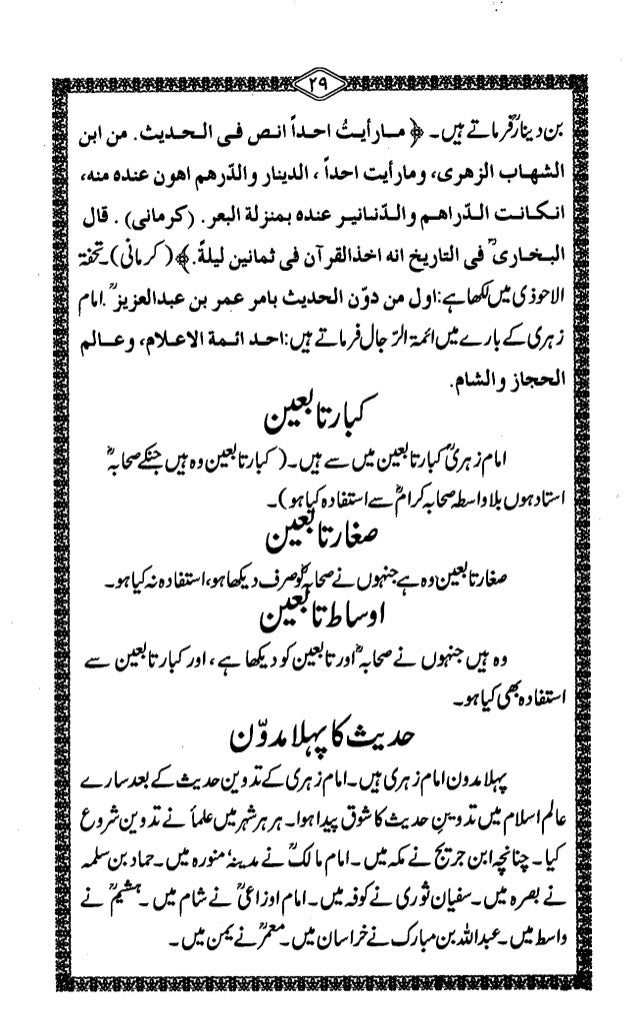 ۲۹
بن دینارؒ فرماتے ہیں۔ ﴿ مارأیتُ احداً انص فی الحدیث. من ابن
الشهاب الزهری، ومارأیت احداً ، الدینار والدّرهم اهون عنده منه،
انکانت الدّراهم والدّنانیر عنده بمنزلة البعر. (کرمانی) . قال
البخاریؒ فی التاریخ انه اخذالقرآن فی ثمانین لیلةً.﴾ (کرمانی)۔ تحفۃ
الاحوذی میں لکھا ہے: اول من دوّن الحدیث بامر عمر بن عبدالعزیزؒ. امام
زہری کے بارے میں ائمۃ الرّجال فرماتے ہیں: احد ائمة الاعلام، وعالم
الحجاز والشام.
کبار تابعین
امام زہریؒ کبار تابعین میں سے ہیں۔ ( کبار تابعین وہ ہیں جنکے صحابہؓ
استاد ہوں بلا واسطہ صحابہ کرامؓ سے استفادہ کیا ہو)۔
صغار تابعین
صغار تابعین وہ ہے جنہوں نے صحابہؓ کو صرف دیکھا ہو، استفادہ نہ کیا ہو۔
اوساط تابعین
وہ ہیں جنہوں نے صحابہؓ اور تابعین کو دیکھا ہے ، اور کبار تابعین سے
استفادہ بھی کیا ہو۔
حدیث کا پہلا مدوّن
پہلا مدون امام زہری ہیں۔ امام زہری کے تدوین حدیث کے بعد سارے
عالم اسلام میں تدوینِ حدیث کا شوق پیدا ہوا۔ ہر ہر شہر میں علمأ نے تدوین شروع
کیا۔ چنانچہ ابن جریج نے مکہ میں۔ امام مالکؒ نے مدینہٴ منورہ میں۔ حماد بن سلمہ
نے بصرہ میں۔ سفیان ثوری نے کوفہ میں۔ امام اوزاعیؒ نے شام میں ۔ ہشیمؒ نے
واسط میں۔ عبداللہ بن مبارک نے خراسان میں۔ معمرؒ نے یمن میں ۔